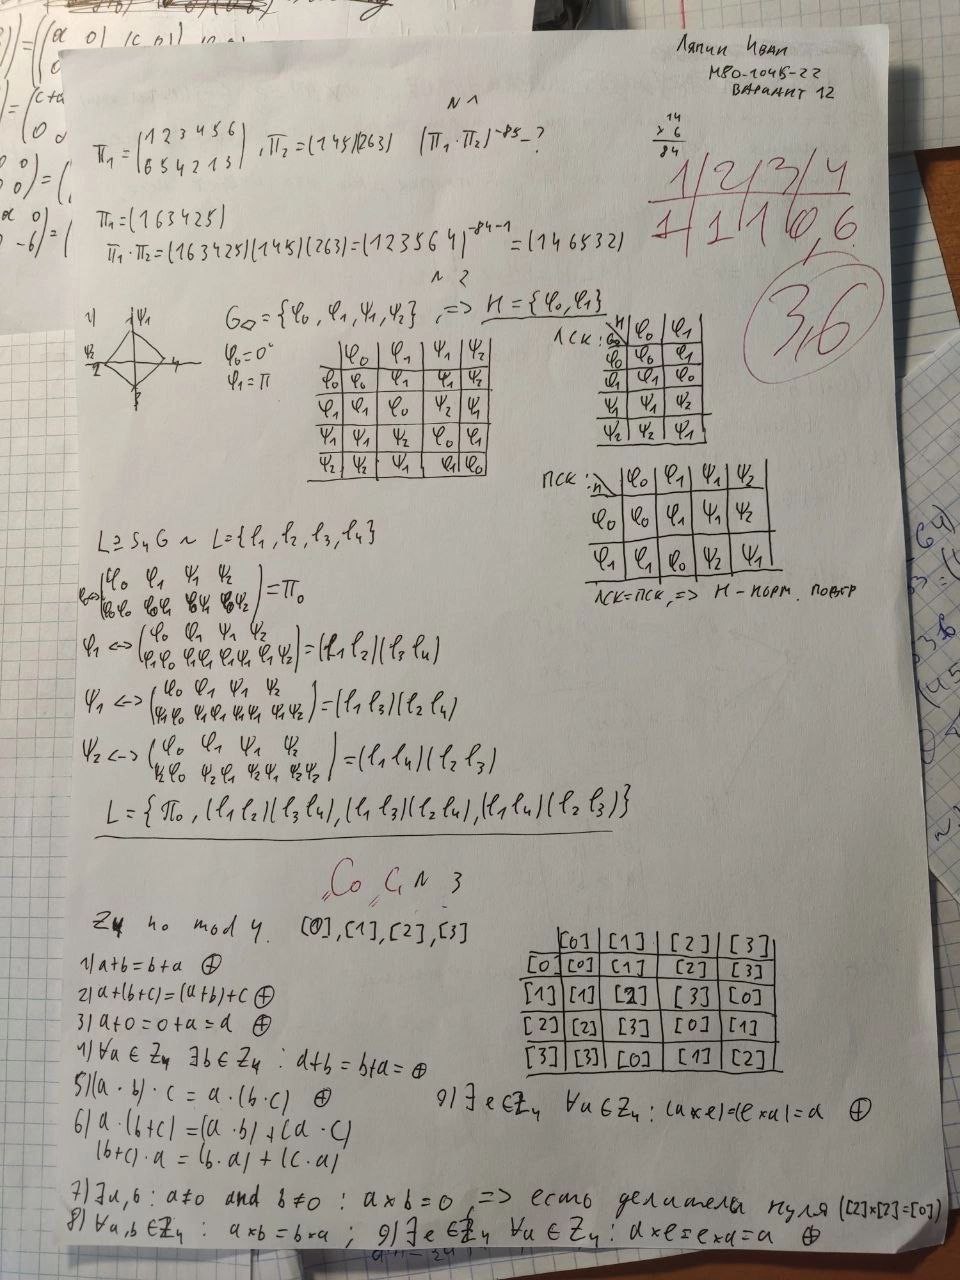 Ляпин Иван
М8О-104Б-22
Вариант 12
N 1
П₁ = (1 2 3 4 5 6 / 6 5 4 2 1 3), П₂ = (145)(263) (П₁·П₂)⁻⁸⁵ - ?
14
× 6
84
1 2 3 4
1 1 1 0,6
3,6
П₁ = (163425)
П₁·П₂ = (163425)(145)(263) = (123564)⁻⁸⁴⁻¹ = (146532)
N 2
1) ψ₁
ψ₂
G◇ = {φ₀, φ₁, ψ₁, ψ₂}, => H = {φ₀, φ₁}
φ₀ = 0°
φ₁ = π
φ₀ φ₁ ψ₁ ψ₂
φ₀ φ₀ φ₁ ψ₁ ψ₂
φ₁ φ₁ φ₀ ψ₂ ψ₁
ψ₁ ψ₁ ψ₂ φ₀ φ₁
ψ₂ ψ₂ ψ₁ φ₁ φ₀
ЛСК: H φ₀ φ₁
φ₀ φ₀ φ₁
φ₁ φ₁ φ₀
ψ₁ ψ₁ ψ₂
ψ₂ ψ₂ ψ₁
ПСК: H φ₀ φ₁ ψ₁ ψ₂
φ₀ φ₀ φ₁ ψ₁ ψ₂
φ₁ φ₁ φ₀ ψ₂ ψ₁
ЛСК=ПСК, => H - норм. подгр
L ⊇ S₄ G ~ L = {l₁, l₂, l₃, l₄}
φ₀ <-> (φ₀ φ₁ ψ₁ ψ₂ / φ₀φ₀ φ₀φ₁ φ₀ψ₁ φ₀ψ₂) = П₀
φ₁ <-> (φ₀ φ₁ ψ₁ ψ₂ / φ₁φ₀ φ₁φ₁ φ₁ψ₁ φ₁ψ₂) = (l₁ l₂)(l₃ l₄)
ψ₁ <-> (φ₀ φ₁ ψ₁ ψ₂ / ψ₁φ₀ ψ₁φ₁ ψ₁ψ₁ ψ₁ψ₂) = (l₁ l₃)(l₂ l₄)
ψ₂ <-> (φ₀ φ₁ ψ₁ ψ₂ / ψ₂φ₀ ψ₂φ₁ ψ₂ψ₁ ψ₂ψ₂) = (l₁ l₄)(l₂ l₃)
L = {П₀, (l₁ l₂)(l₃ l₄), (l₁ l₃)(l₂ l₄), (l₁ l₄)(l₂ l₃)}
N 3
Z₄ по mod 4. [0], [1], [2], [3]
[0] [1] [2] [3]
[0] [0] [1] [2] [3]
[1] [1] [2] [3] [0]
[2] [2] [3] [0] [1]
[3] [3] [0] [1] [2]
1) a+b=b+a ⊕
2) a+(b+c)=(a+b)+c ⊕
3) a+0=0+a=a ⊕
4) ∀a ∈ Z₄ ∃b ∈ Z₄ : a+b=b+a= ⊕
5) (a·b)·c = a·(b·c) ⊕
9) ∃e∈Z₄ ∀a∈Z₄ : (a×e)=(e×a)=a ⊕
6) a·(b+c)=(a·b)+(a·c)
(b+c)·a=(b·a)+(c·a)
7) ∃a,b : a≠0 and b≠0 : a×b=0, => есть делители нуля ([2]×[2]=[0])
8) ∀a,b∈Z₄ : a×b=b×a; 9) ∃e∈Z₄ ∀a∈Z₄ : a×e=e×a=a ⊕